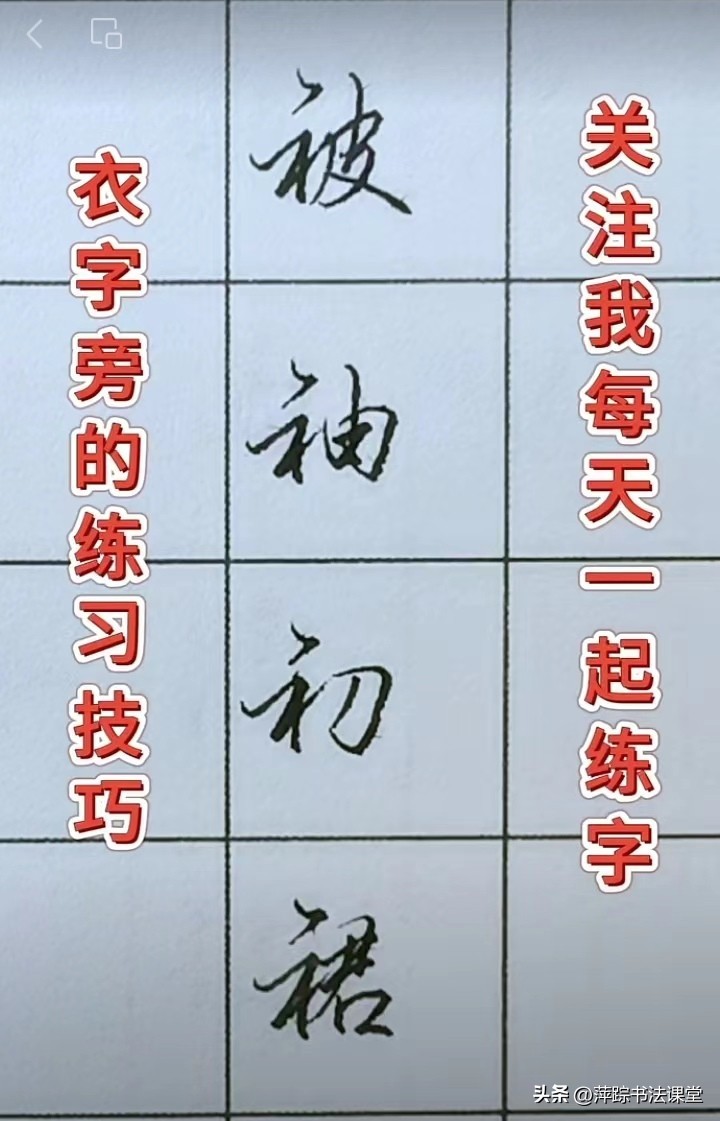 衣字旁的练习技巧
被
袖
初
裙
关注我每天一起练字
头条 @萍踪书法课堂